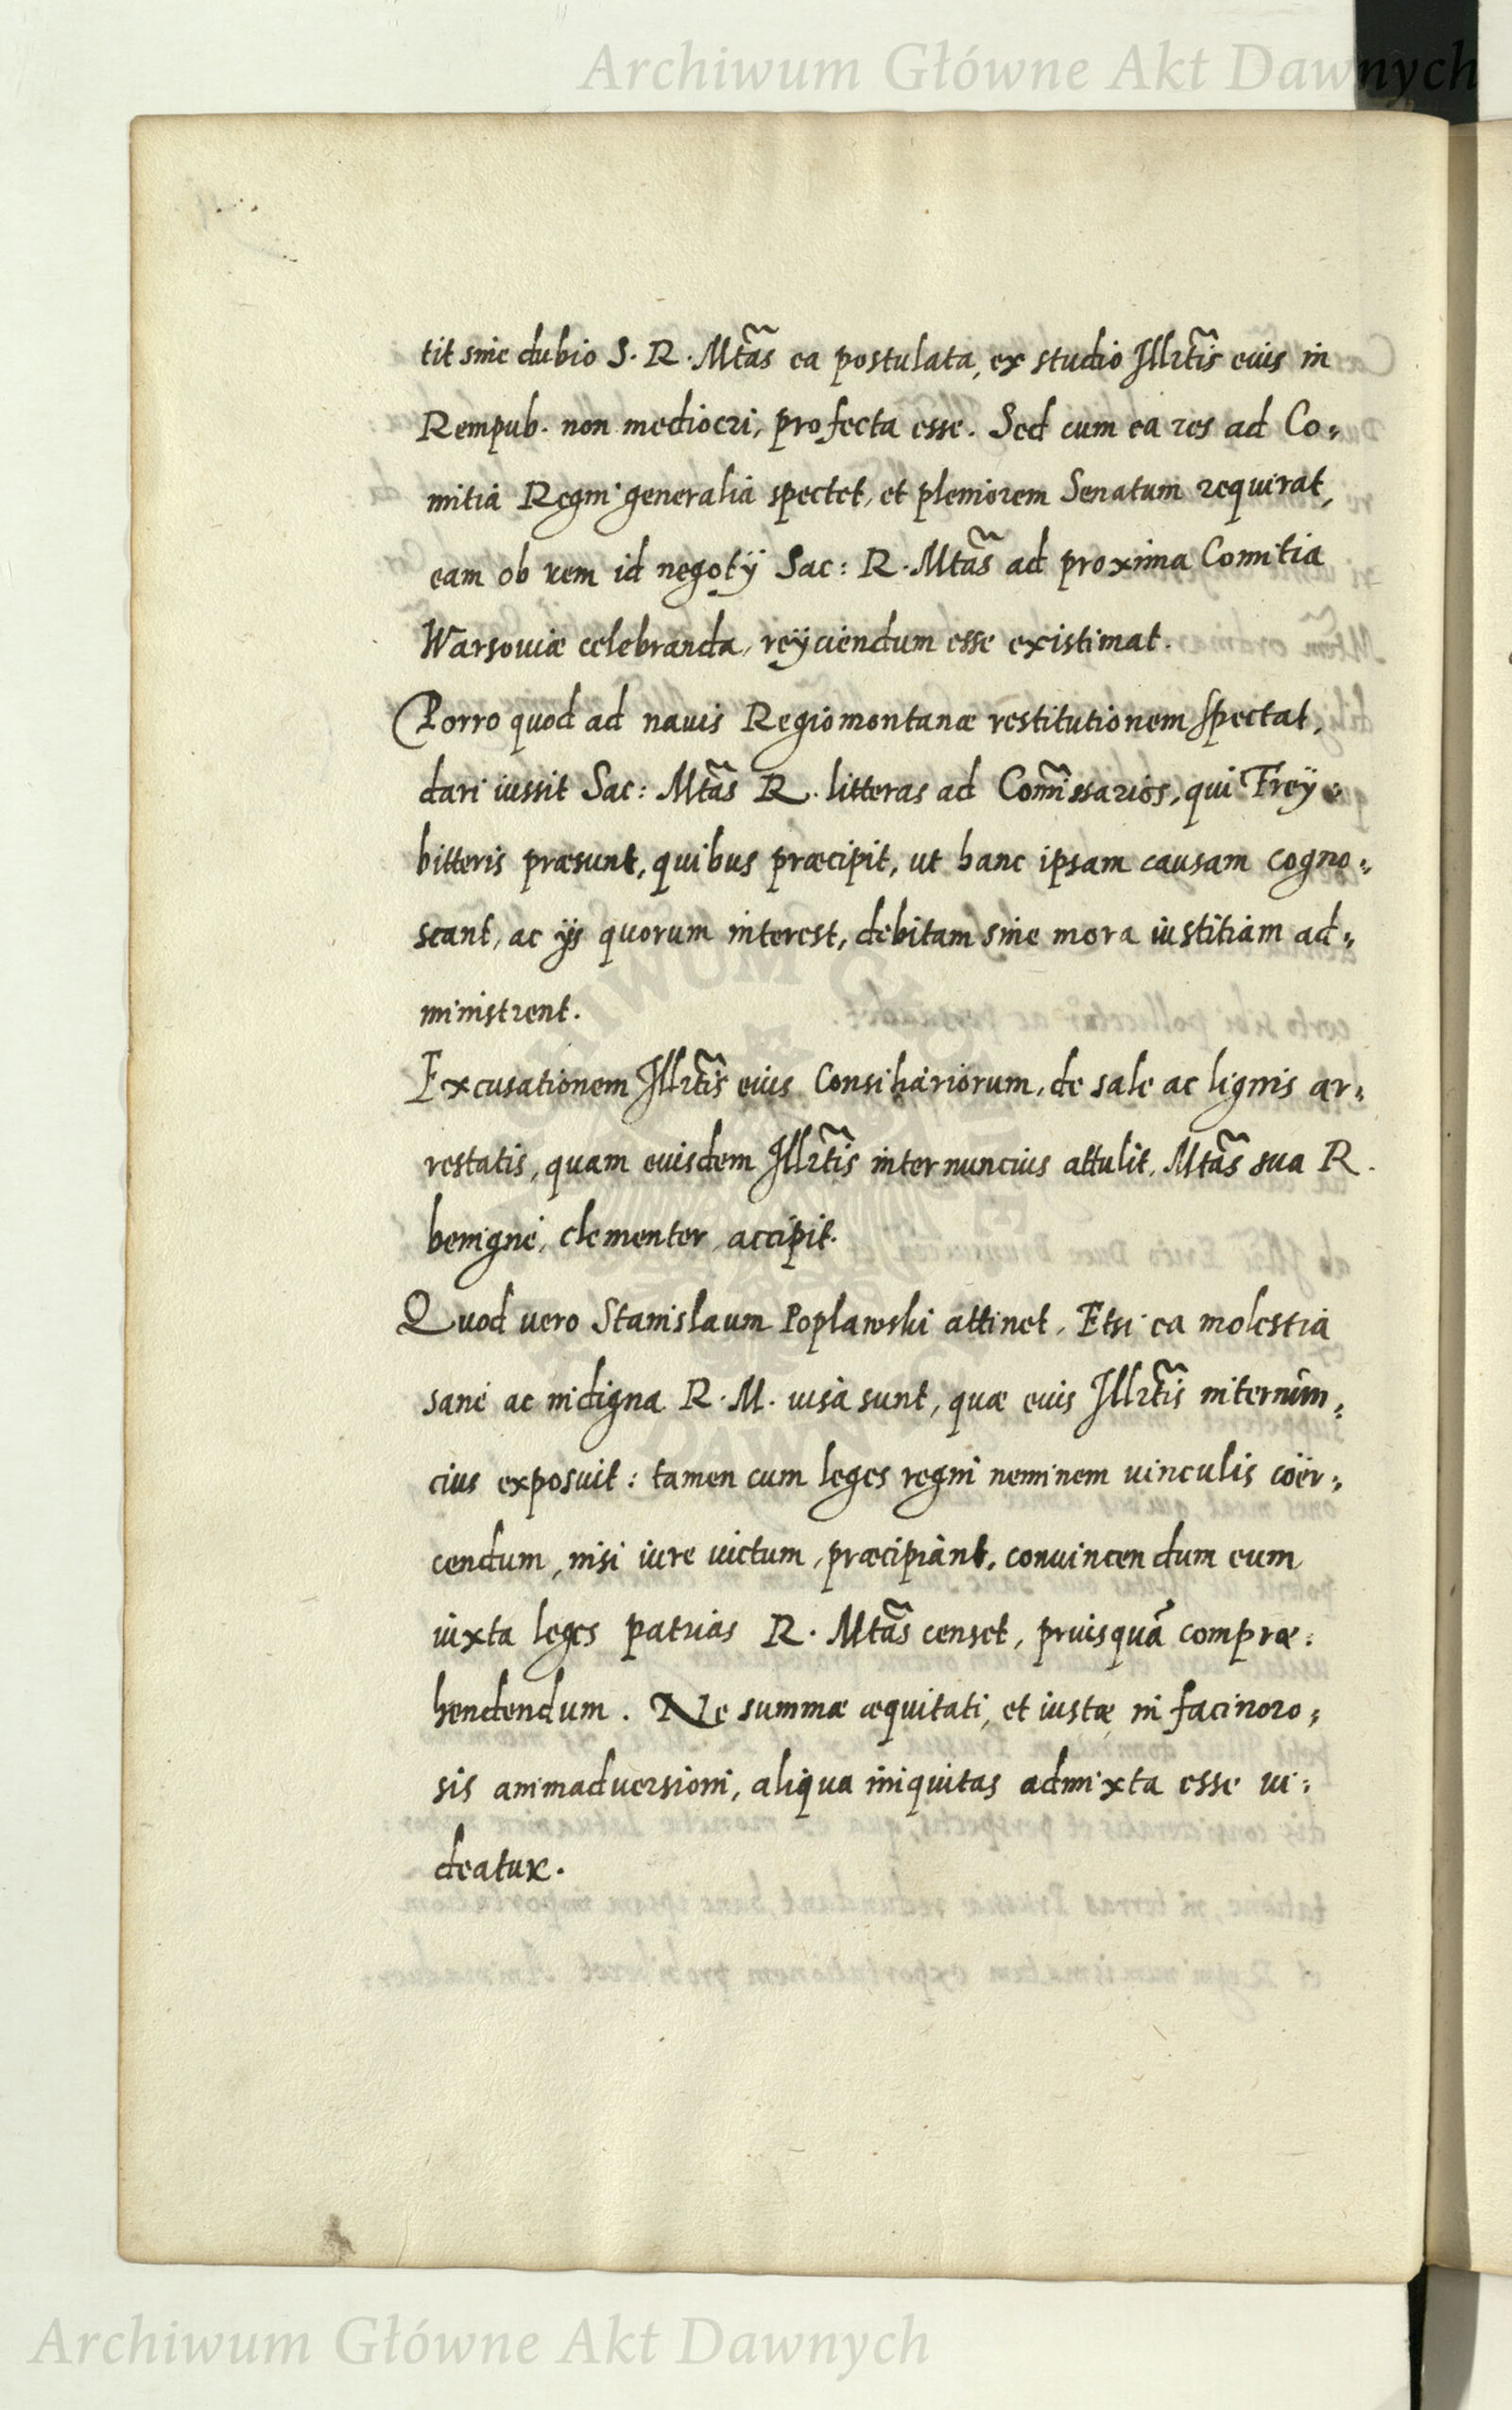 Archiwum Główne Akt Dawnych
tit sine dubio S. R. Mtãs ea postulata, ex studio Illrt̃is eius in
Rempub. non mediocri, profecta esse. Sed cum ea res ad Co=
mitia Regni generalia spectet, et pleniorem Senatum requirat,
eam ob rem id negotÿ Sac: R. Mtãs ad proxima Comitia
Warsouiæ celebranda, reÿciendum esse existimat.
Porro quod ad nauis Regiomontanæ restitutionem spectat,
dari iussit Sac: Mtãs R. litteras ad Com̃issarios, qui Freÿ=
bitteris præsunt, quibus præcipit, ut hanc ipsam causam cogno=
scant, ac ijs quorum interest, debitam sine mora iustitiam ad=
ministrent.
Excusationem Illrt̃is eius Consiliariorum, de sale ac lignis ar=
restatis, quam eiusdem Illrt̃is internuncius attulit, Mtãs sua R.
benignè, clementer accipit.
Quod uero Stanislaum Poplawski attinet, Etsi ea molestia
sanè ac indigna R. M. uisa sunt, quæ eius Illrt̃is internun=
cius exposuit: tamen cum leges regni neminem uinculis coër=
cendum, nisi iure uictum, præcipiant, conuincendum eum
iuxta leges patrias R. Mtãs censet, priusquã compræ=
hendendum. Ne summæ æquitati, et iustæ in facinoro=
sis animaduersioni, aliqua iniquitas admixta esse ui=
deatur.
Archiwum Główne Akt Dawnych